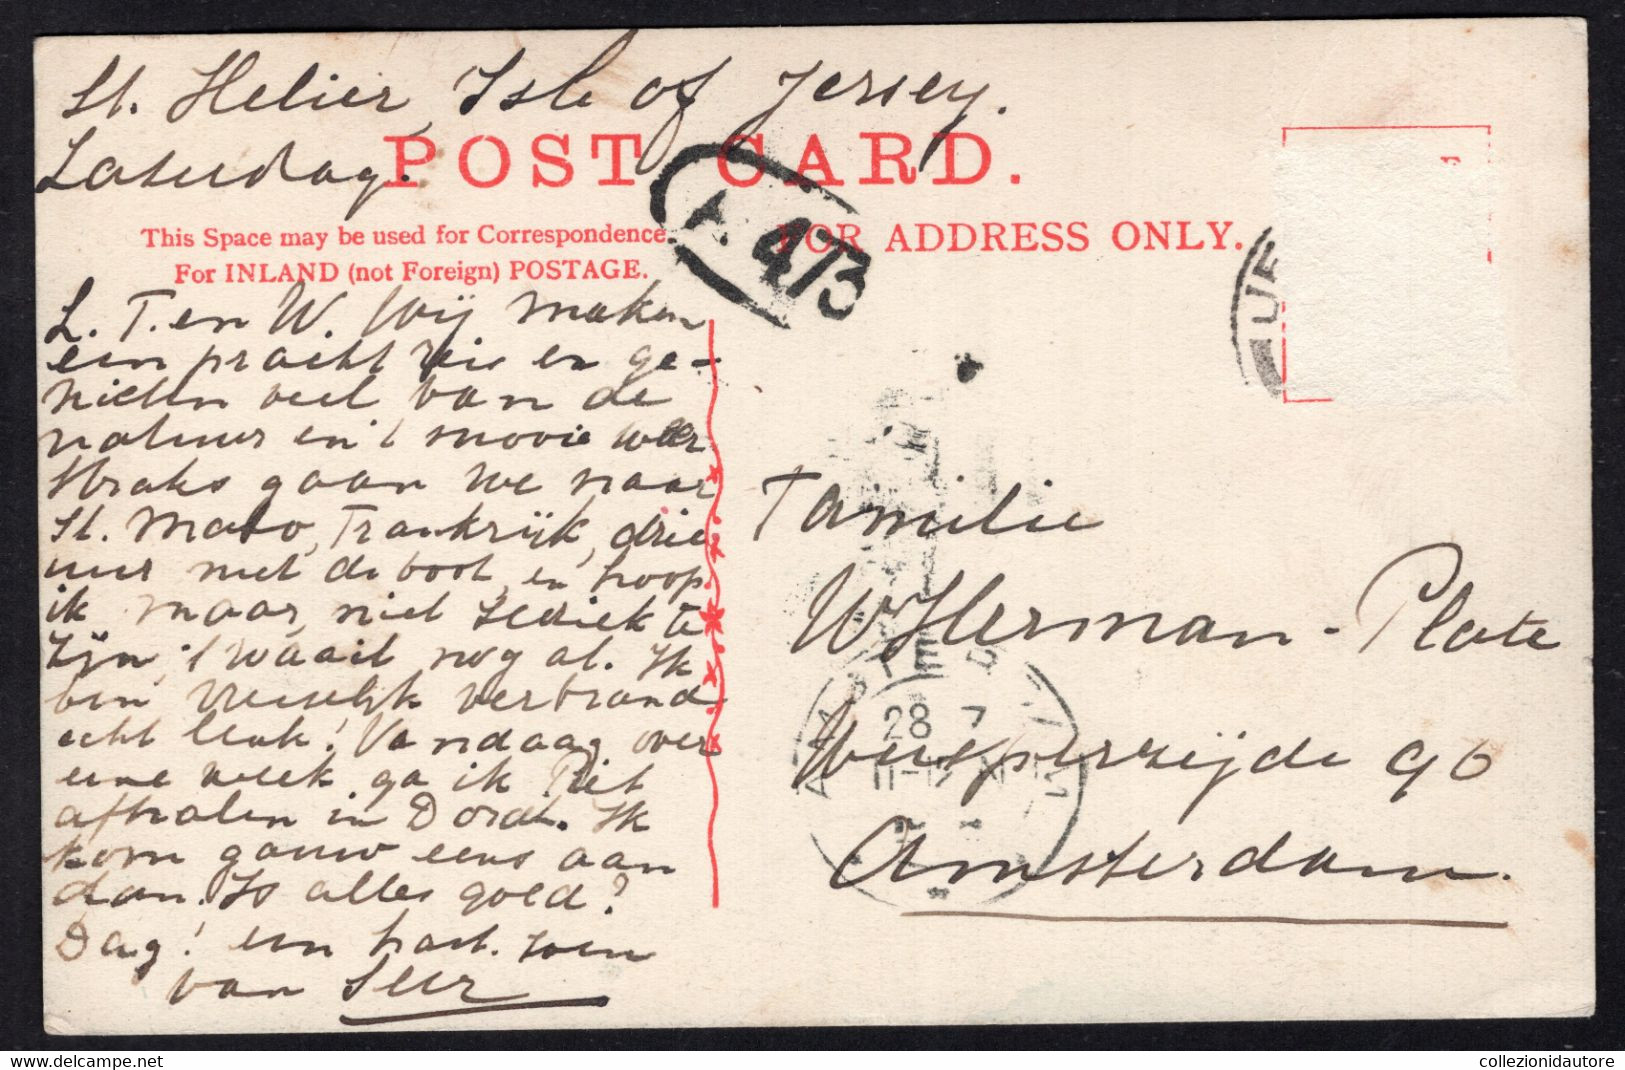 St. Helier, Isle of Jersey.
Saturdag.
POST CARD.
This Space may be used for Correspondence
For INLAND (not Foreign) POSTAGE.
FOR ADDRESS ONLY.
A. 473
L. T. en W. Wij maken
een pracht reis en ge-
nieten veel van de
natuur en 't mooie weer
Straks gaan we naar
St. Malo, Frankrijk, drie
uur met de boot, en hoop
ik maar, niet zeeziek te
zijn, 't waait nog al. Ik
ben vreeselijk verbrand,
echt leuk! Vandaag over
eene week ga ik Piet
afhalen in Dordt. Ik
kom gauw eens aan
dan. Is alles goed?
Dag! een hart. zoen
van
Familie
W Herman-Plate
Weesperzijde 96
Amsterdam.
28 7
collezionidautore